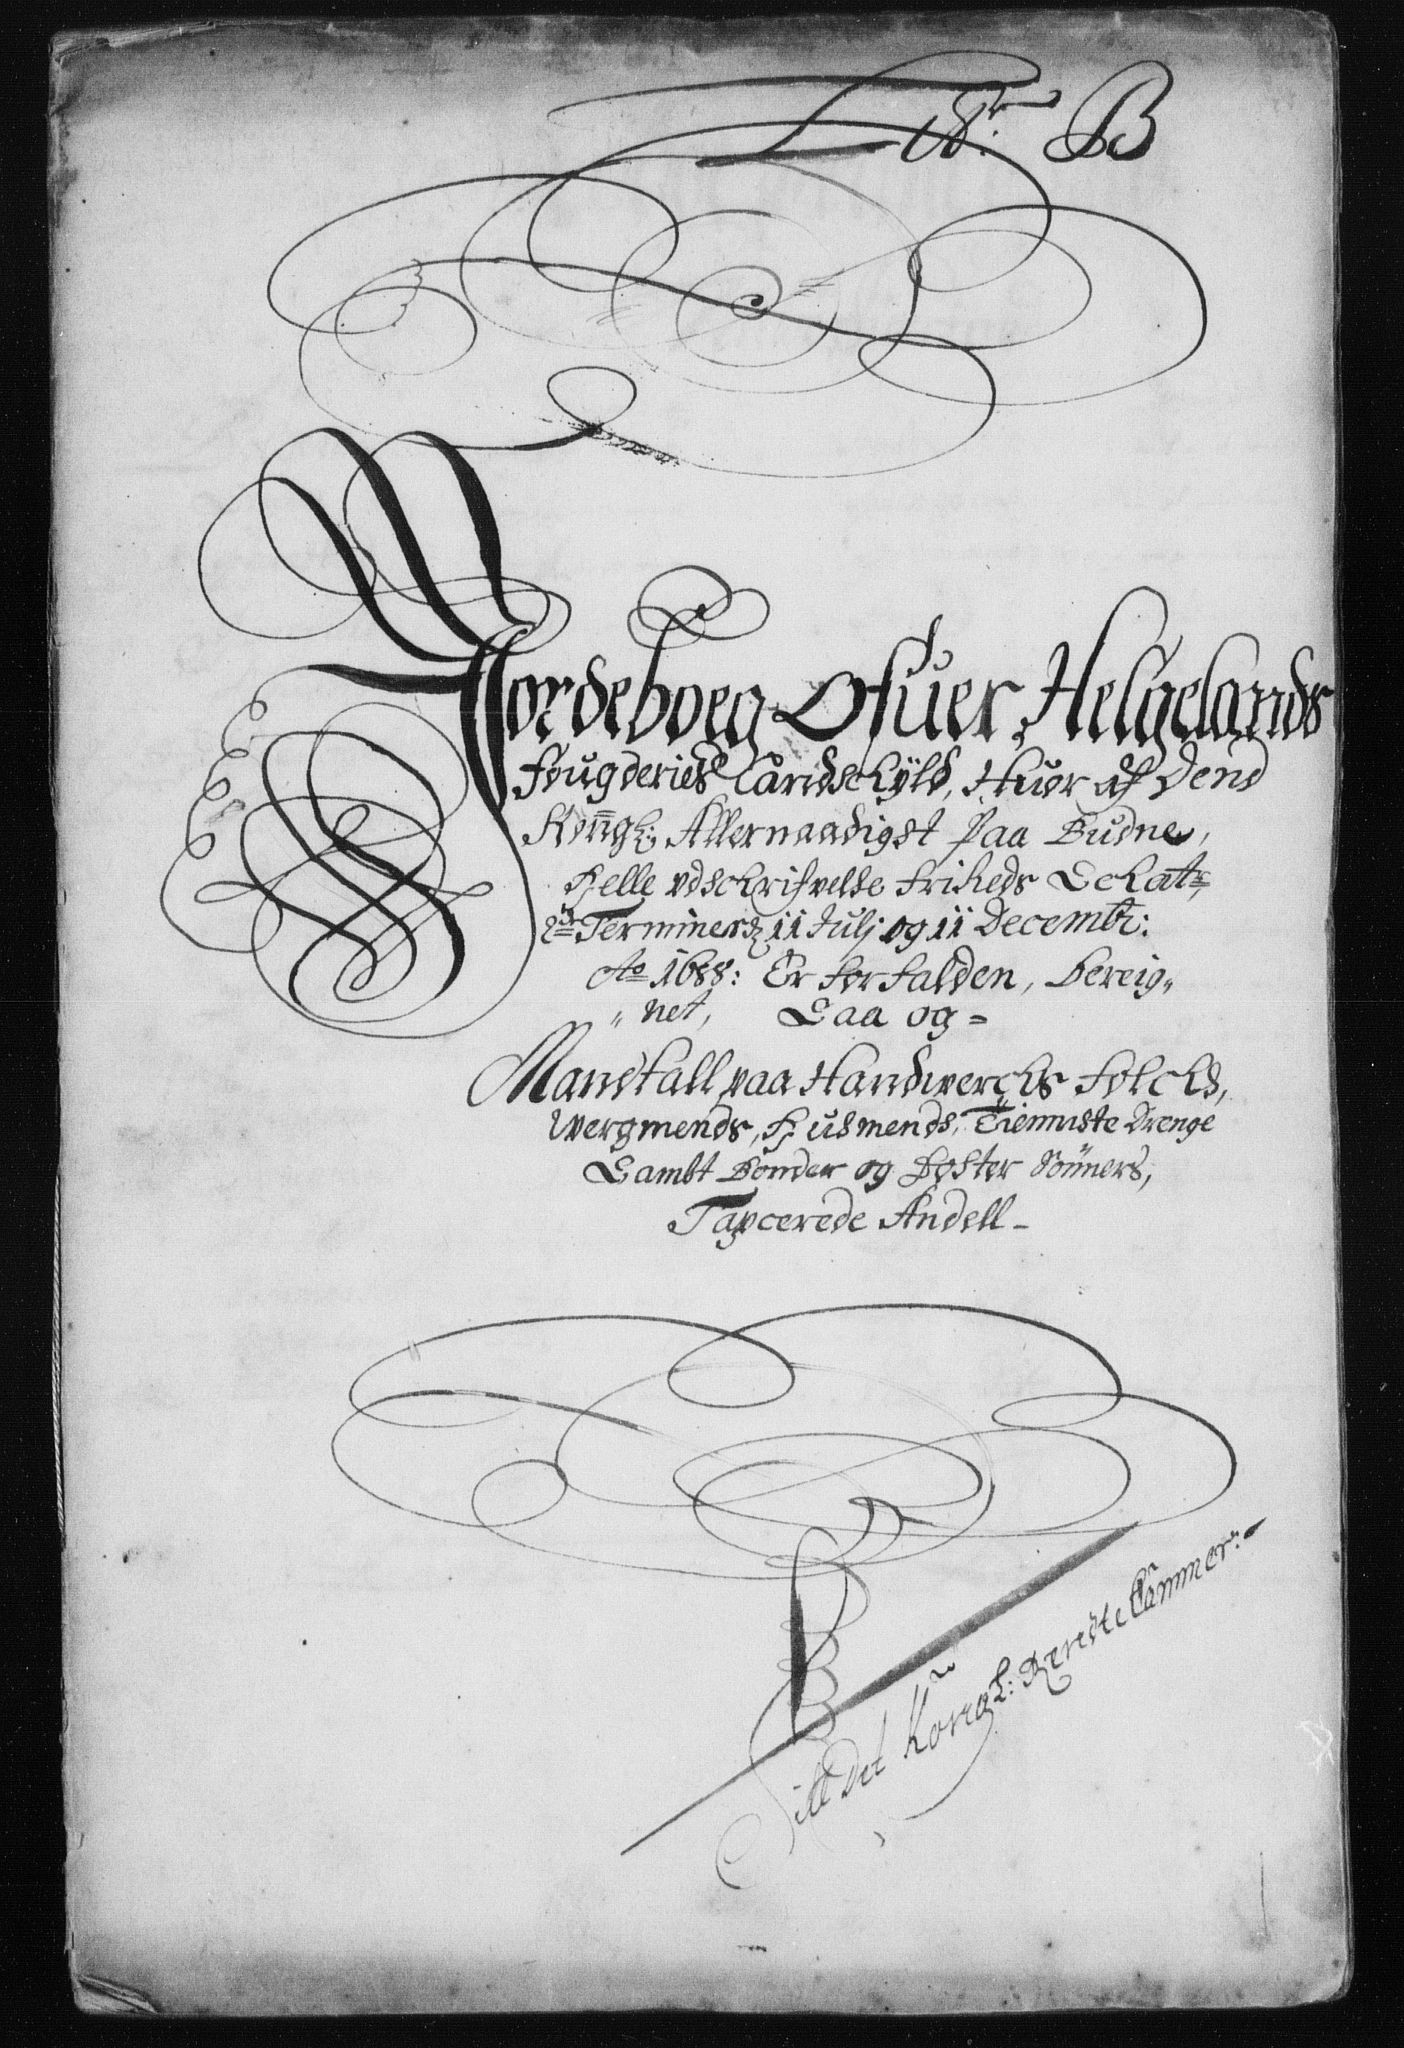 Litr: B
Jordeboeg Ofuer Helgelands
fougderies Landschyld, Huor af Dend
Kongl: Allernaadigst Paa Budne,
Helle udschrifvelse friheds Schatt,
2de Terminer 11 Julj og 11 Decembr:
Ao 1688: Er forfalden, bereig„
„net, Saa og =
Mandtall paa Handwerchs folchs,
Wergmends, Husmends, Tienniste Drenge
Sambt Bønder og Foster Sönners,
Taxcerede Andell –
Till Det Kongl: Rendte Cammer: